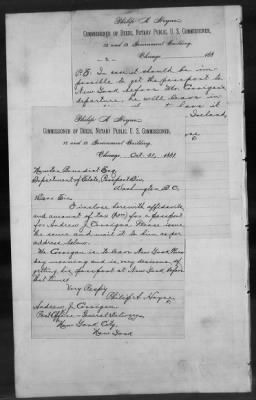 Philip A. Hoyne
COMMISSIONER OF DEEDS, NOTARY PUBLIC, U. S. COMMISSIONER,
12 and 13 Government Building.
- 2 -
Chicago, 188
P.S. In case it should be im-
possible to get the passport to
New York before Mr. Corrigan's
departure, he will leave
it to have it
Ireland,
Philip A. Hoyne
COMMISSIONER OF DEEDS, NOTARY PUBLIC, U. S. COMMISSIONER,
12 and 13 Government Building,
Chicago, Oct. 31, 1881.
Newton Benedict Esq,
Department of State, Passport Div,
Washington D.C.
Dear Sir
I inclose herewith affidavits,
and amount of tax for a passport
for Andrew J. Corrigan. Please issue
the same and mail it to him as per
address below.
Mr Corrigan is to leave New York
day morning and is very desirous of
getting his passport at New York before
that time.
Very Respy
Philip A. Hoyne
Andrew J. Corrigan
Post Office - General Delivery
New York City,
New York